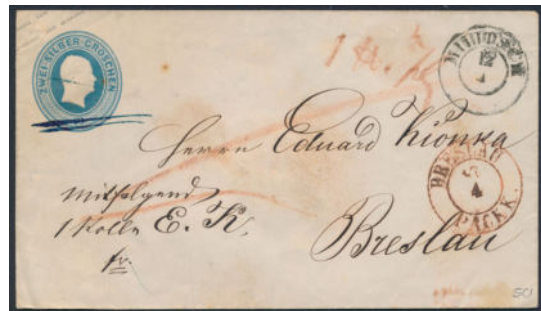 ZWEI SILBER GROSCHEN
12
Herrn Eduard Kionka
BRESLAU
4
PACKK.
mitfolgend
1 Rolle E. K.
fr.
Breslau
50